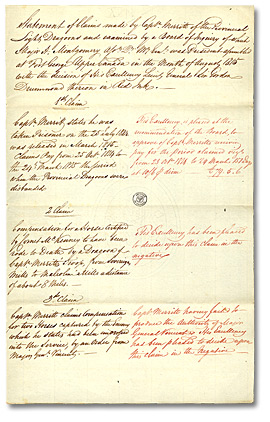 Statement of Claims made by Capt. Merritt of the Provincial
Light Dragoons and examined by a Board of Inquiry of which
Major Montgomery was President assembled
at Fort George Upper Canada in the Month of August 1815
with the decision of His Excellency Lieut. General Sir Gordon
Drummond thereon in Red Ink.
1st Claim
Capt. Merritt, states he was
taken Prisoner on the 25 July 1814
was released in March 1815.
Claims Pay from 25 Oct. 1814 to
the 24 March 1815 the period
when the Provincial Dragoons were
disbanded
His Excellency is pleased at the
recommendation of the Board, to
approve of Capt. Merritt receiving
pay for the period claimed
from 25 Oct. 1814 to 24 March 1815
at
2 Claim
Compensation for a Horse
to have been
rode to Death by a Dragoon of
Capt. Merritt's Troop, from
Mills to Mills a distance
of about 8 Miles.
His Excellency has been pleased
to decide upon this Claim in the
negative
3rd Claim
Capt. Merritt claims compensation
for two Horses captured by the Enemy
which he states had been impressed
into the Service, by an order from
Major Gen.
Capt. Merritt having failed to
produce the Authority of Major
General His Excellency
has been pleased to decide upon
this Claim in the Negative